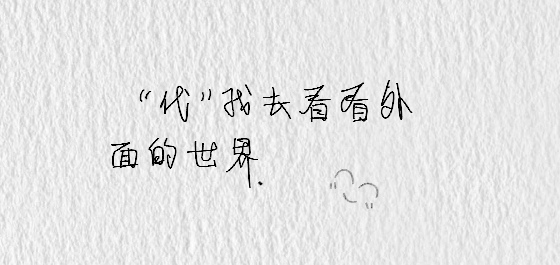 “代”我去看看外
面的世界.